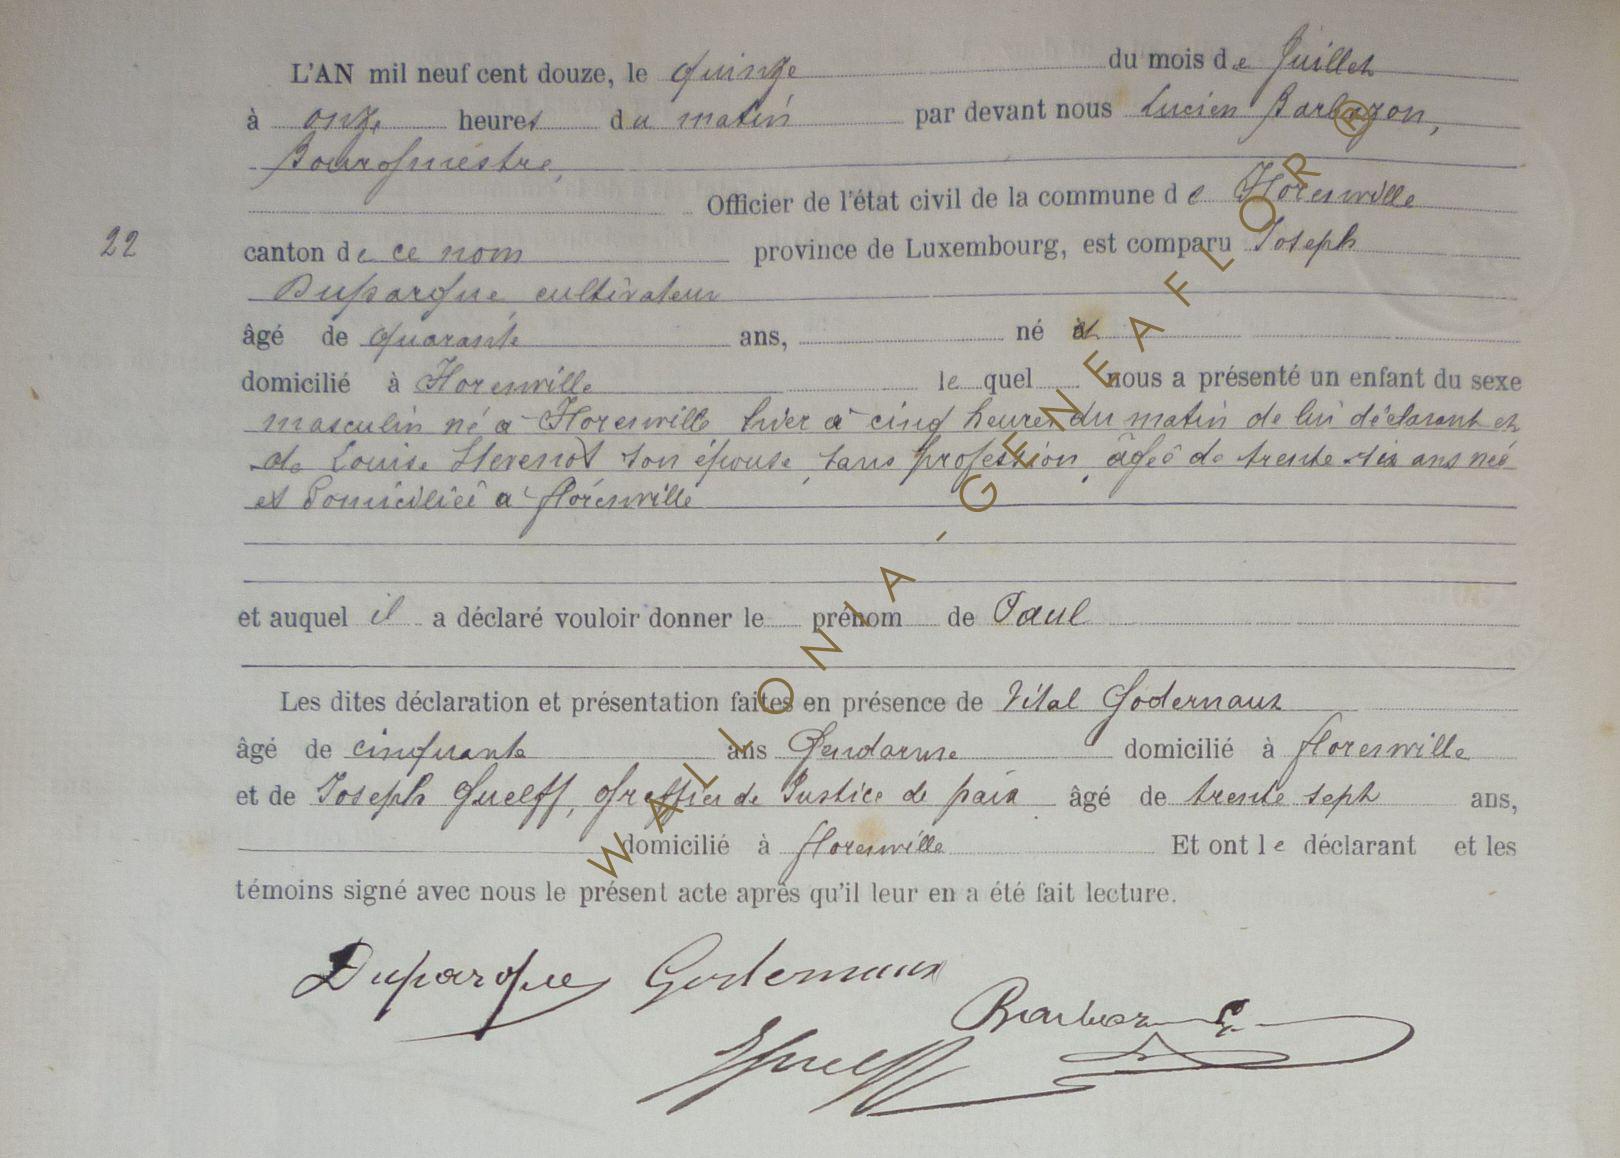 L'AN mil neuf cent douze, le quinze du mois de Juillet
à onze heures du matin par devant nous Lucien Barbazon,
Bourgmestre,
Officier de l'état civil de la commune de Florenville
22 canton de ce nom province de Luxembourg, est comparu Joseph
Duparque, cultivateur
âgé de quarante ans, né et
domicilié à Florenville lequel nous a présenté un enfant du sexe
masculin né à Florenville hier à cinq heures du matin de lui déclarant et
de Louise son épouse, sans profession, âgée de trente six ans née
et domiciliée à florenville
et auquel il a déclaré vouloir donner le prénom de Paul
Les dites déclaration et présentation faites en présence de Vital Godernaux
âgé de cinquante ans Gendarme domicilié à florenville
et de Joseph Guelff, Greffier de Justice de paix âgé de trente sept ans,
domicilié à florenville Et ont le déclarant et les
témoins signé avec nous le présent acte après qu'il leur en a été fait lecture.
Duparque Godernaux
Barbazon
JGuelff
WALLONIA-GENEAFLOR®